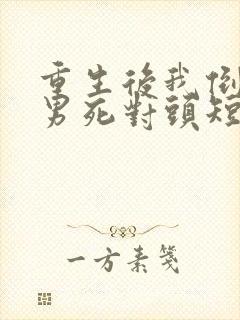 重生後我倒
男死對頭短
一方素箋